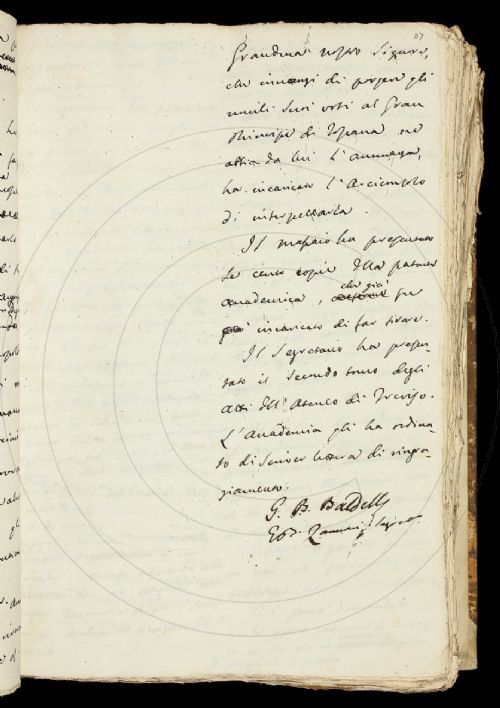 Granduca nostro Signore,
che innanzi di porger gli
umili suoi voti al Gran
Principe di Toscana ne
abbia da lui l'annuenza,
ha incaricato l'Arciconsolo
di interpellarla.
Il massaio ha presentato
le cento copie della patente
accademica, che già fu
incaricato di far tirare.
Il Segretario ha presen-
tato il secondo tomo degli
atti dell'Ateneo di Treviso.
L'Accademia gli ha ordina-
to di scriver lettera di ringra-
ziamento.
G. B. Baldelli
Zannoni Segret